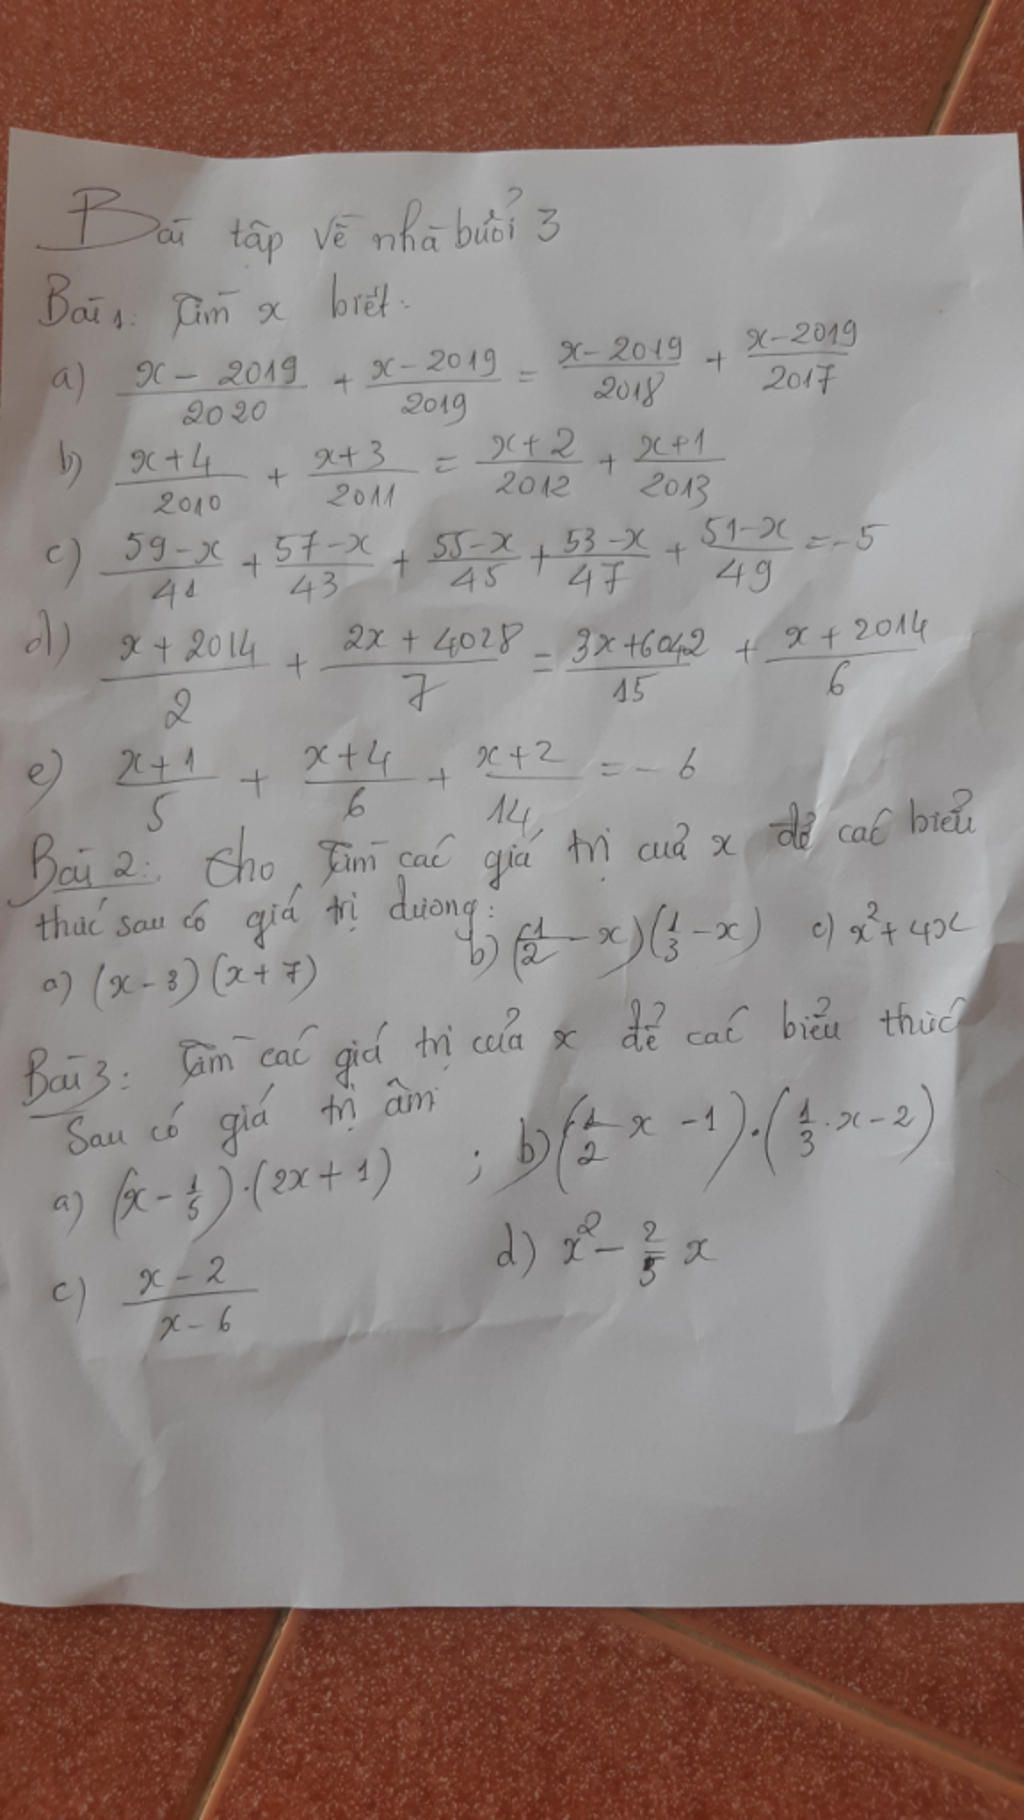 Bài tập về nhà buổi 3
Bài 1: Tìm x biết:
a) (x - 2019)/2020 + (x - 2019)/2019 = (x - 2019)/2018 + (x - 2019)/2017
b) (x + 4)/2010 + (x + 3)/2011 = (x + 2)/2012 + (x + 1)/2013
c) (59 - x)/41 + (57 - x)/43 + (55 - x)/45 + (53 - x)/47 + (51 - x)/49 = -5
d) (x + 2014)/2 + (2x + 4028)/7 = (3x + 6042)/15 + (x + 2014)/6
e) (x + 1)/5 + (x + 4)/6 + (x + 2)/14 = -6
Bài 2: Cho Tìm các giá trị của x để các biểu
thức sau có giá trị dương:
a) (x - 3)(x + 7) b) (1/2 - x)(1/3 - x) c) x² + 4x
Bài 3: Tìm các giá trị của x để các biểu thức
Sau có giá trị âm
a) (x - 1/5).(2x + 1) ; b) (1/2 x - 1).(1/3 . x - 2)
c) (x - 2)/(x - 6) d) x² - 2/5 x